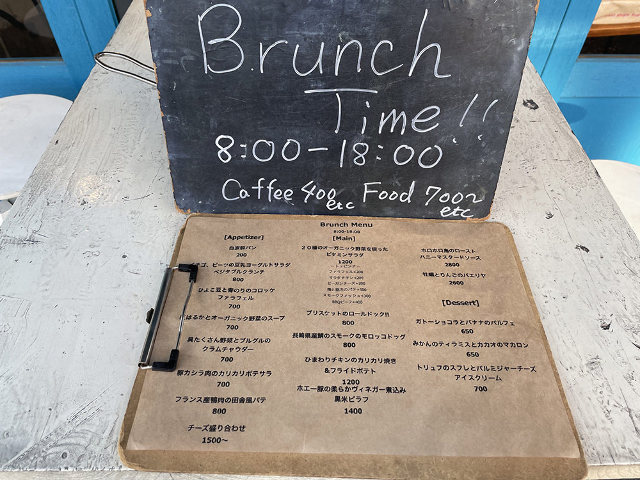 Brunch
Time!!
8:00-18:00
Caffee 400 etc Food 700~ etc
Brunch Menu
8:00-18:00
[Appetizer]
自家製パン
200
ゴ、ビーツの豆乳ヨーグルトサラダ
ベジタブルクランチ
800
ひよこ豆と青のりのコロッケ
ファラフェル
700
はるかとオーガニック野菜のスープ
700
具たくさん野菜とブルグルの
クラムチャウダー
700
豚カシラ肉のカリカリポテサラ
700
フランス産鴨肉の田舎風パテ
800
チーズ盛り合わせ
1500～
[Main]
20種のオーガニック野菜を使った
ビタミンサラダ
1200
ファラフェル+300
サラダチキン+300
ビーガンチーズ+300
スモークフィッシュ+300
BBQビーフ+400
ブリスケットのロールドッグ!!
800
長崎県産鯖のスモークのモロッコドッグ
800
ひまわりチキンのカリカリ焼き
&フライドポテト
1200
ホエー豚の柔らかヴィネガー煮込み
黒米ピラフ
1400
ホロホロ鳥のロースト
ハニーマスタードソース
2800
牡蠣とりんごのパエリヤ
2600
[Dessert]
ガトーショコラとバナナのパルフェ
650
みかんのティラミスとカカオのマカロン
650
トリュフのスフレとパルミジャーチーズ
アイスクリーム
700